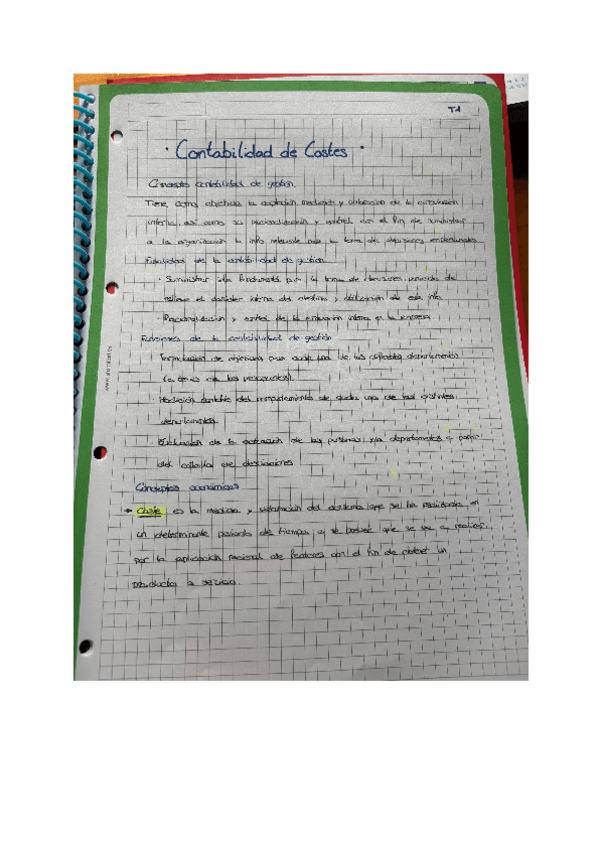 T1
· Contabilidad de Costes ·
Concepto contabilidad de gestión.
Tiene como objetivo la captación, medición y valoración de la circulación
interna, así como su racionalización y control con el fin de suministrar
a la organización la info relevante para la toma de decisiones empresariales
Finalidad de la contabilidad de gestión
· Suministrar a la para la toma de decisiones,
relieve el carácter interno del destino y utilización de esta info.
· Racionalización y control de la circulación interna en la empresa
Funciones de la contabilidad de gestión
de objetivos para cada uno de los departamentos
(a través de los presupuestos).
· Medición contable del comportamiento de cada uno de los distintos
departamentos
· de la actuación de las personas y/o departamentos a partir
del de desviaciones
Conceptos económicos
Coste es la medida y valoración del consumo que se ha realizado en
un determinado periodo de tiempo o se prevee que se va a realizar,
por la aplicación racional de factores con el fin de obtener un
producto o servicio.